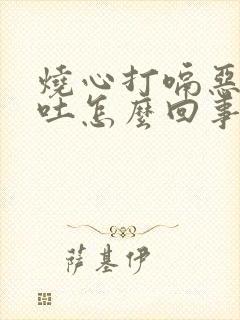 燒心打嗝惡
吐怎麼回事
萨基伊